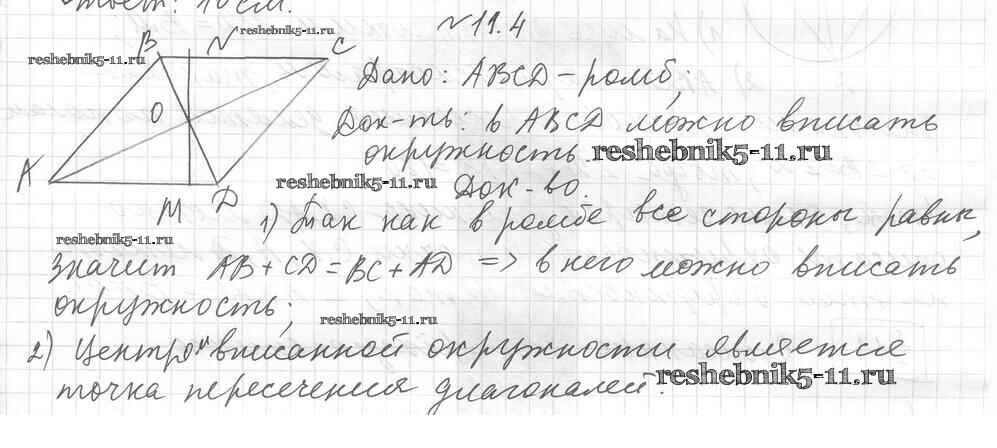 Ответ: 10 см.
№11.4
reshebnik5-11.ru
B N C
reshebnik5-11.ru
Дано: ABCD - ромб;
O
Док-ть: в ABCD можно вписать
окружность. reshebnik5-11.ru
A reshebnik5-11.ru
Док-во.
M D
1) Так как в ромбе все стороны равны,
reshebnik5-11.ru
значит AB + CD = BC + AD => в него можно вписать
окружность;
reshebnik5-11.ru
2) Центром вписанной окружности является
точка пересечения диагоналей.
reshebnik5-11.ru